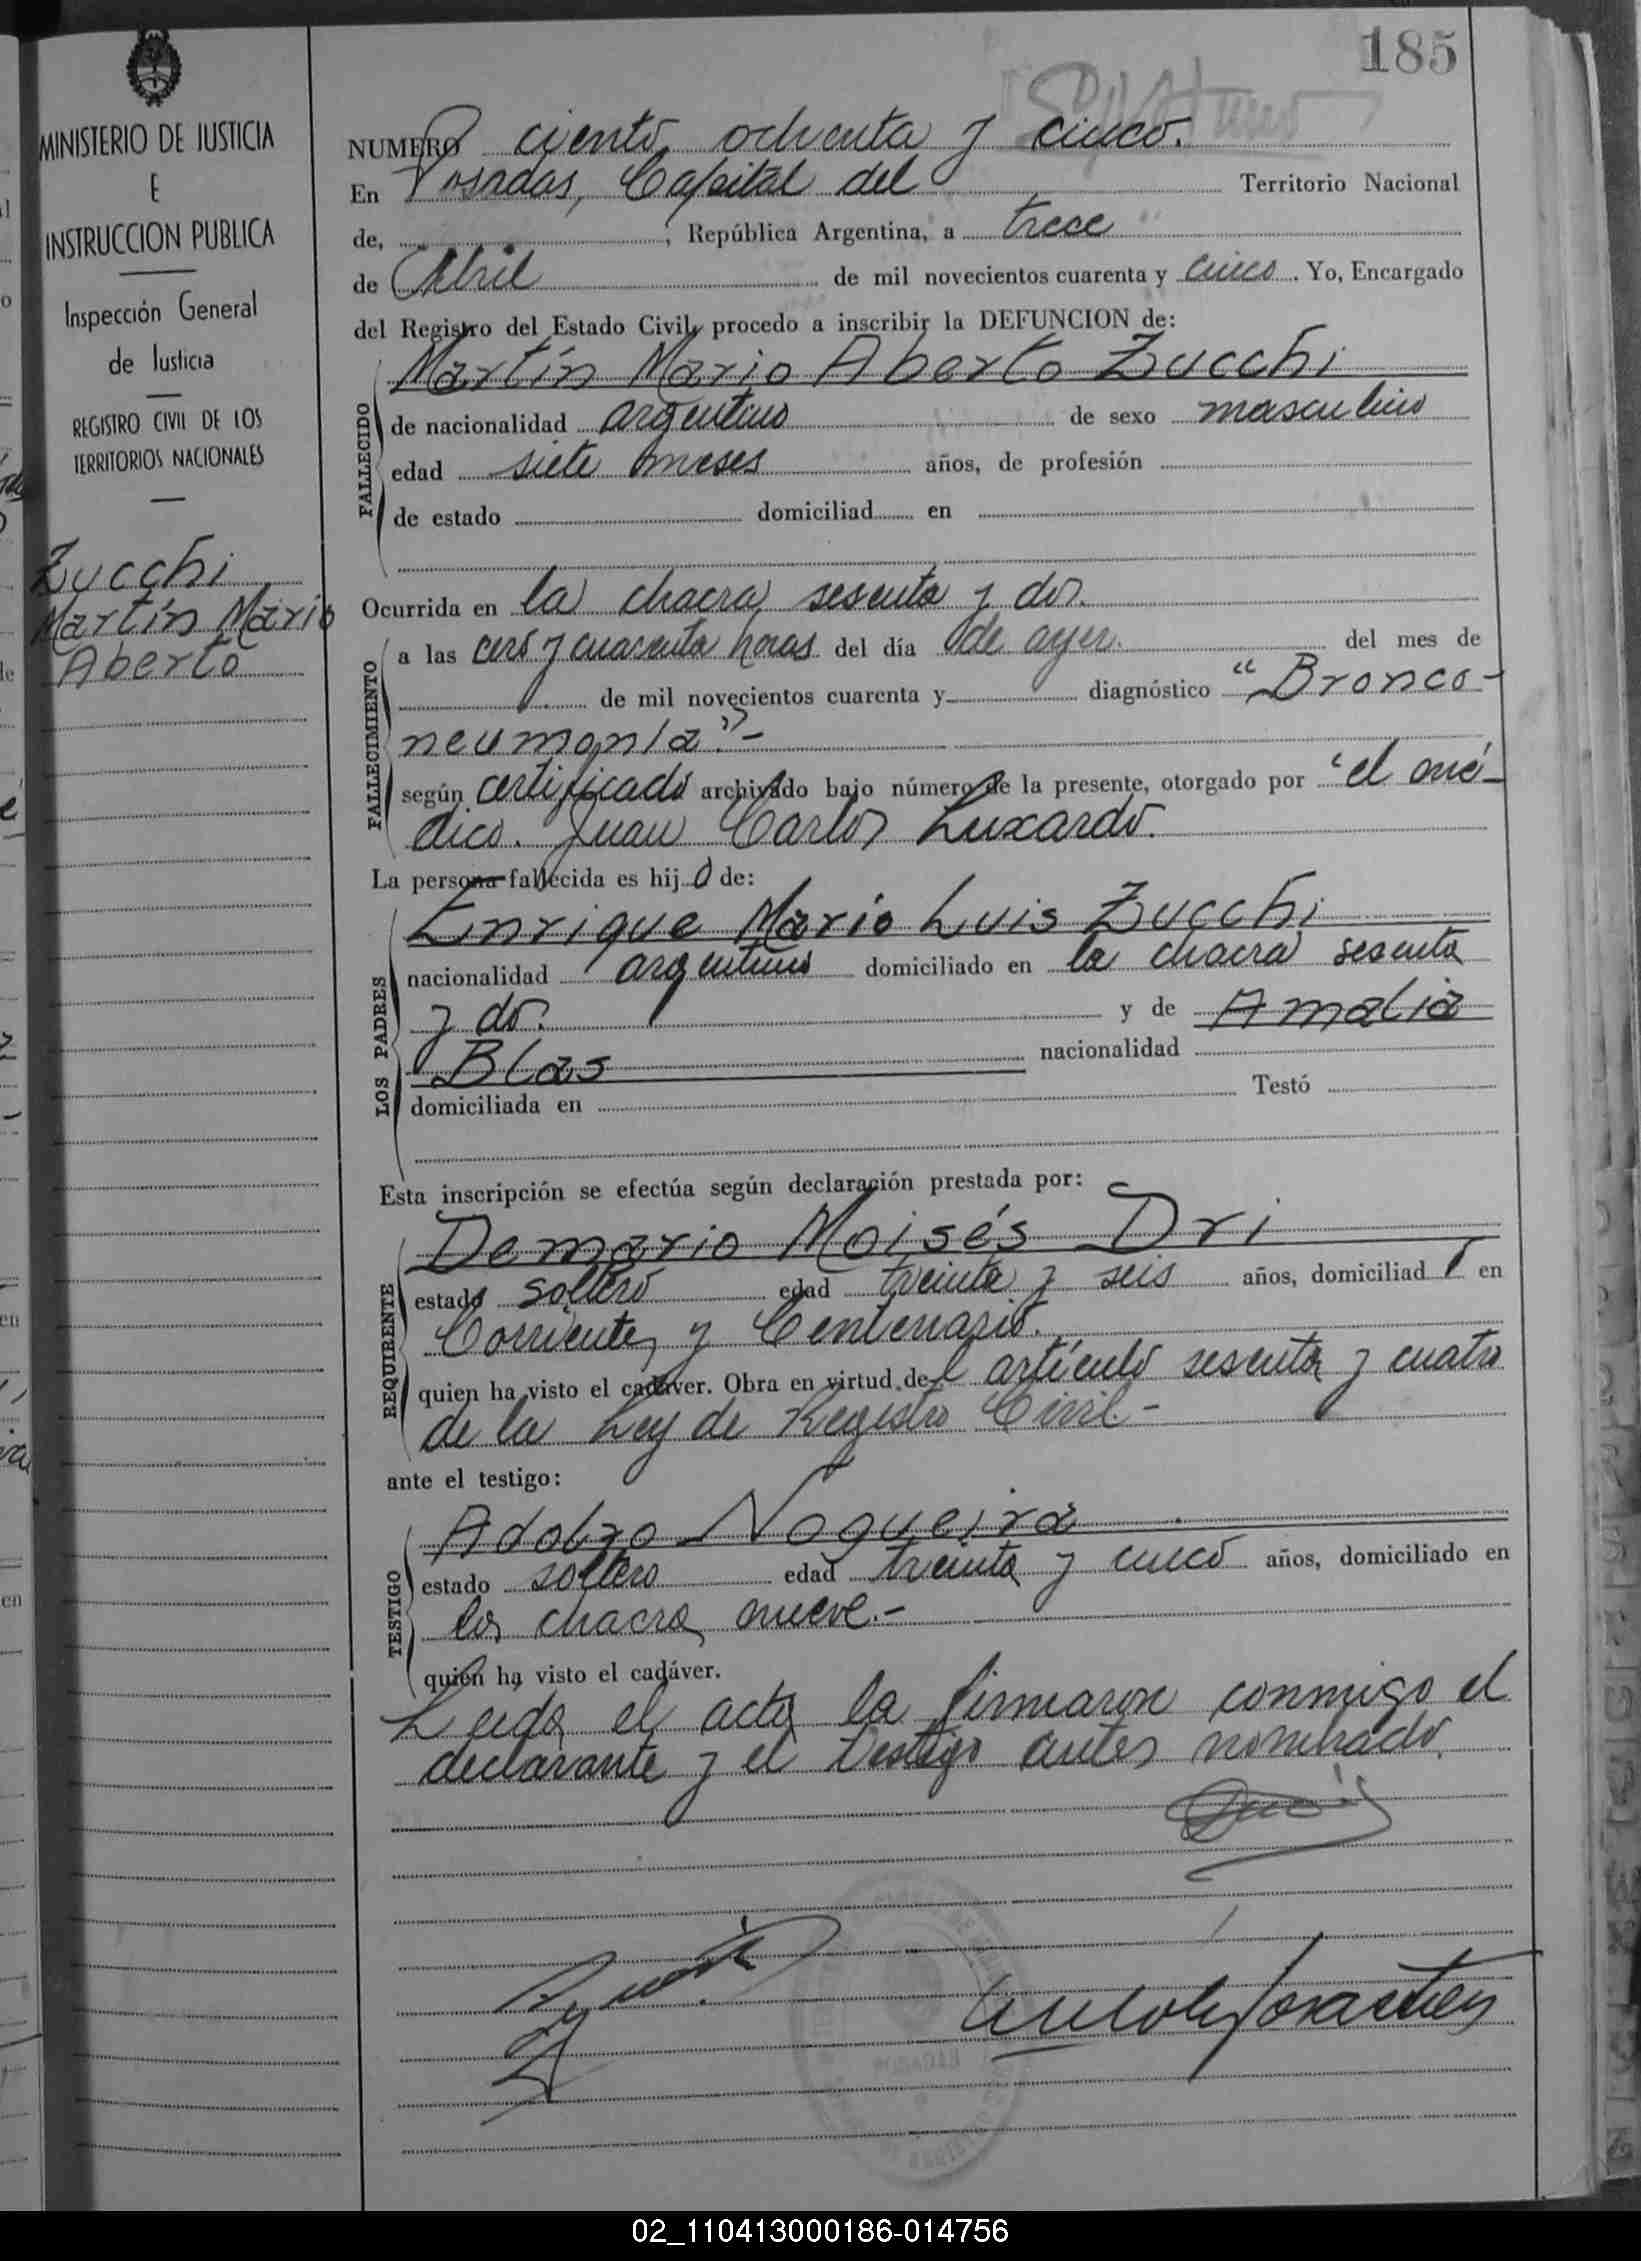 185
MINISTERIO DE JUSTICIA
E
INSTRUCCION PUBLICA
Inspección General
de Justicia
REGISTRO CIVIL DE LOS
TERRITORIOS NACIONALES
Zucchi
Martín Mario
Aberto
NUMERO ciento ochenta y cinco.
En Posadas, Capital del Territorio Nacional
de, , República Argentina, a trece
de Abril de mil novecientos cuarenta y cinco. Yo, Encargado
del Registro del Estado Civil, procedo a inscribir la DEFUNCION de:
FALLECIDO
Martín Mario Aberto Zucchi
de nacionalidad argentino de sexo masculino
edad siete meses años, de profesión
de estado domiciliad en
Ocurrida en la chacra sesenta y dos.
FALLECIMIENTO
a las cero y cuarenta horas del día de ayer. del mes de
de mil novecientos cuarenta y diagnóstico "Bronco-
neumonia".-
según certificado archivado bajo número de la presente, otorgado por el mé-
dico. Juan Carlos Luxardo.
La persona fallecida es hij o de:
LOS PADRES
Enrique Mario Luis Zucchi
nacionalidad argentino domiciliado en la chacra sesenta
y dos. y de Amalia
Blas nacionalidad
domiciliada en Testó
Esta inscripción se efectúa según declaración prestada por:
REQUIRENTE
Demario Moisés Dri
estado soltero edad treinta y seis años, domiciliad o en
Corrientes y Centenario.
quien ha visto el cadáver. Obra en virtud de l artículo sesenta y cuatro
de la Ley de Registro Civil.-
ante el testigo:
TESTIGO
Adolfo Nogueira
estado soltero edad treinta y cinco años, domiciliado en
la chacra nueve.-
quien ha visto el cadáver.
Leida el acta la firmaron conmigo el
declarante y el testigo antes nombrado.
POSADAS
02_110413000186-014756